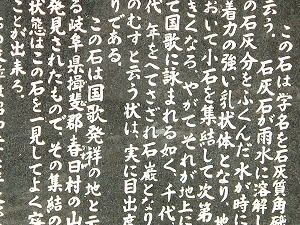 この石は、学名と石灰質角礫
云う。石灰石が雨水に溶解し
の石灰分をふくんだ水が時に
着力の強い乳状体となり、地
おいて小石を集結して次第
きくなる。やがてそれが地上に
て国歌に詠まれる如く、千代
代年をへてさざれ石巌となり
のむすと云う状は、実に目出度
りである。
この石は国歌発祥の地と云
る岐阜県揖斐郡春日村の山
発見されたもので、その集結の
状態はこの石を一見してよく
ことが出来る。